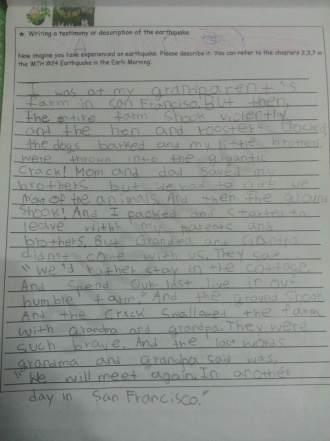 ★ Writing a testimony or description of the earthquake
Now imagine you have experienced an earthquake. Please describe it. You can refer to the chapters 2,3,7 in
the 'MTH #24 Earthquake in the Early Morning'.
I was at my grandparent's
farm in San Francisco. But then,
the entire farm shook violently
and the hen and roosters clucked
the dogs barked and my little brothers
were thrown into the gigantic
crack! Mom and dad saved my
brothers but we had to give up
most of the animals. And then the ground
shook! And I packed and started to
leave with my parents and
brothers. But Grandma and Grandpa
didn't come with us. They said
"We'd rather stay in the cottage.
And spend our last live in our
humble farm." And the ground shook
And the crack swallowed the farm
with grandma and grandpa. They were
such brave. And the last words
grandma and grandpa said was,
"We will meet again. In another
day in San Francisco."